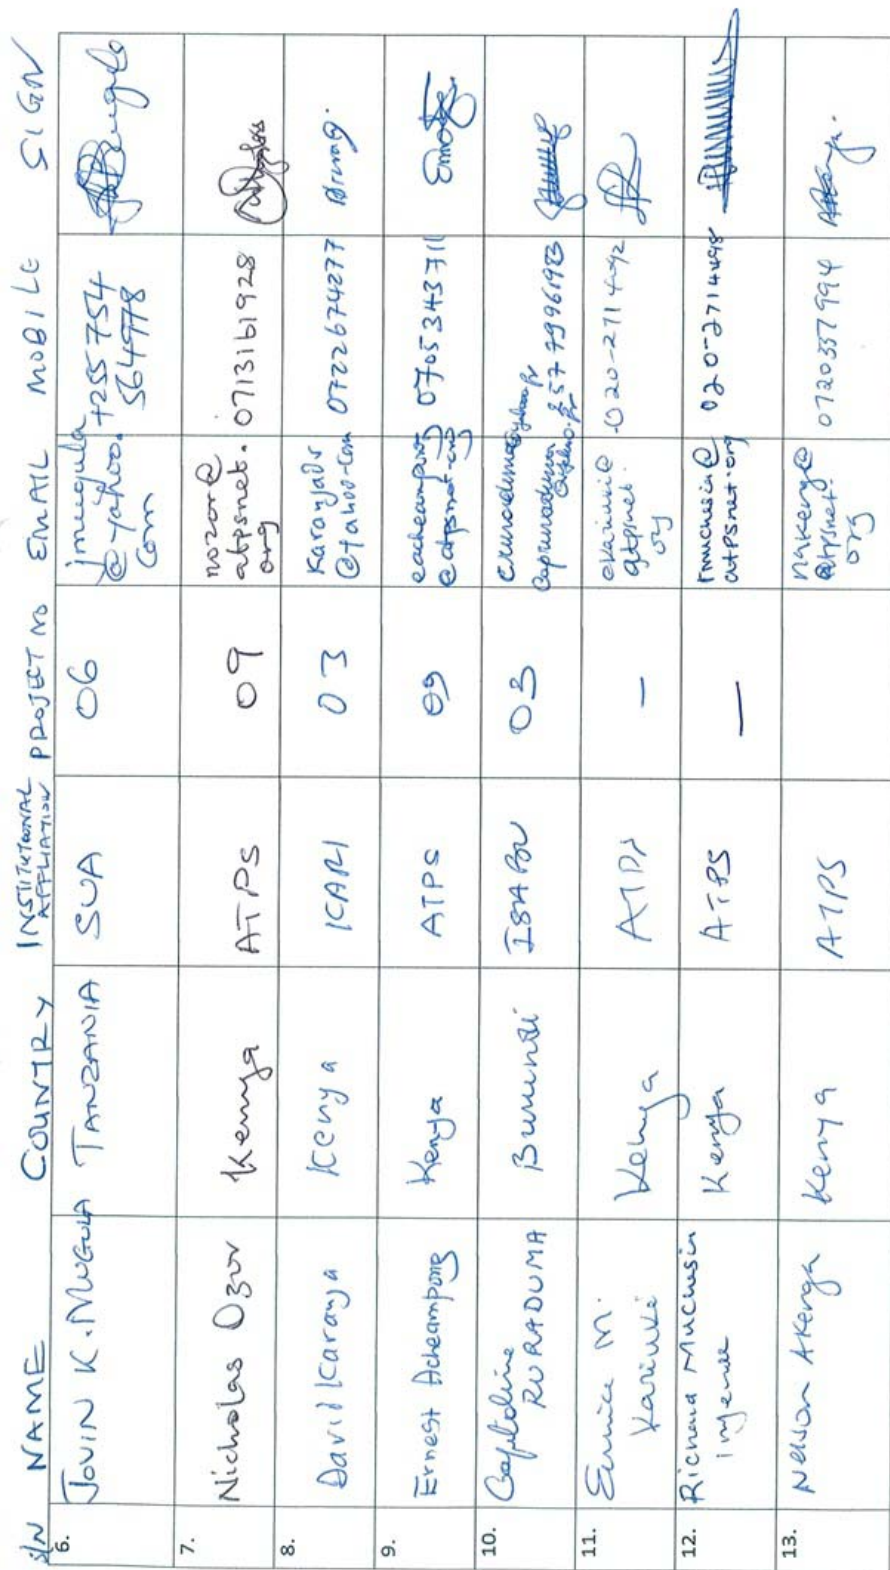 S/N NAME COUNTRY INSTITUTIONAL AFFILIATION PROJECT NO EMAIL MOBILE SIGN
6. JOVIN K. MUGULA TANZANIA SUA 06 jmugula @yahoo. com +255 754 564978
7. Nicholas Ozor Kenya ATPS 09 nozor@ atpsnet. org 0713161928
8. David Karanja Kenya KARI 03 karanjadr @yahoo.com 0722674277
9. Ernest Acheampong Kenya ATPS 09 eacheampong @atpsnet.org 0705343711
10. RURADUMA Burundi ISABU 03 257 79961923
11. Eunice M. Kariuki Kenya ATPS — ekariuki@ atpsnet. org 020-2714092
12. Richard Muchesia Kenya ATPS — rmuchesia@ atpsnet.org 020-2714498
13. Nelson Akenga Kenya ATPS nakenga@ atpsnet. org 0720357994